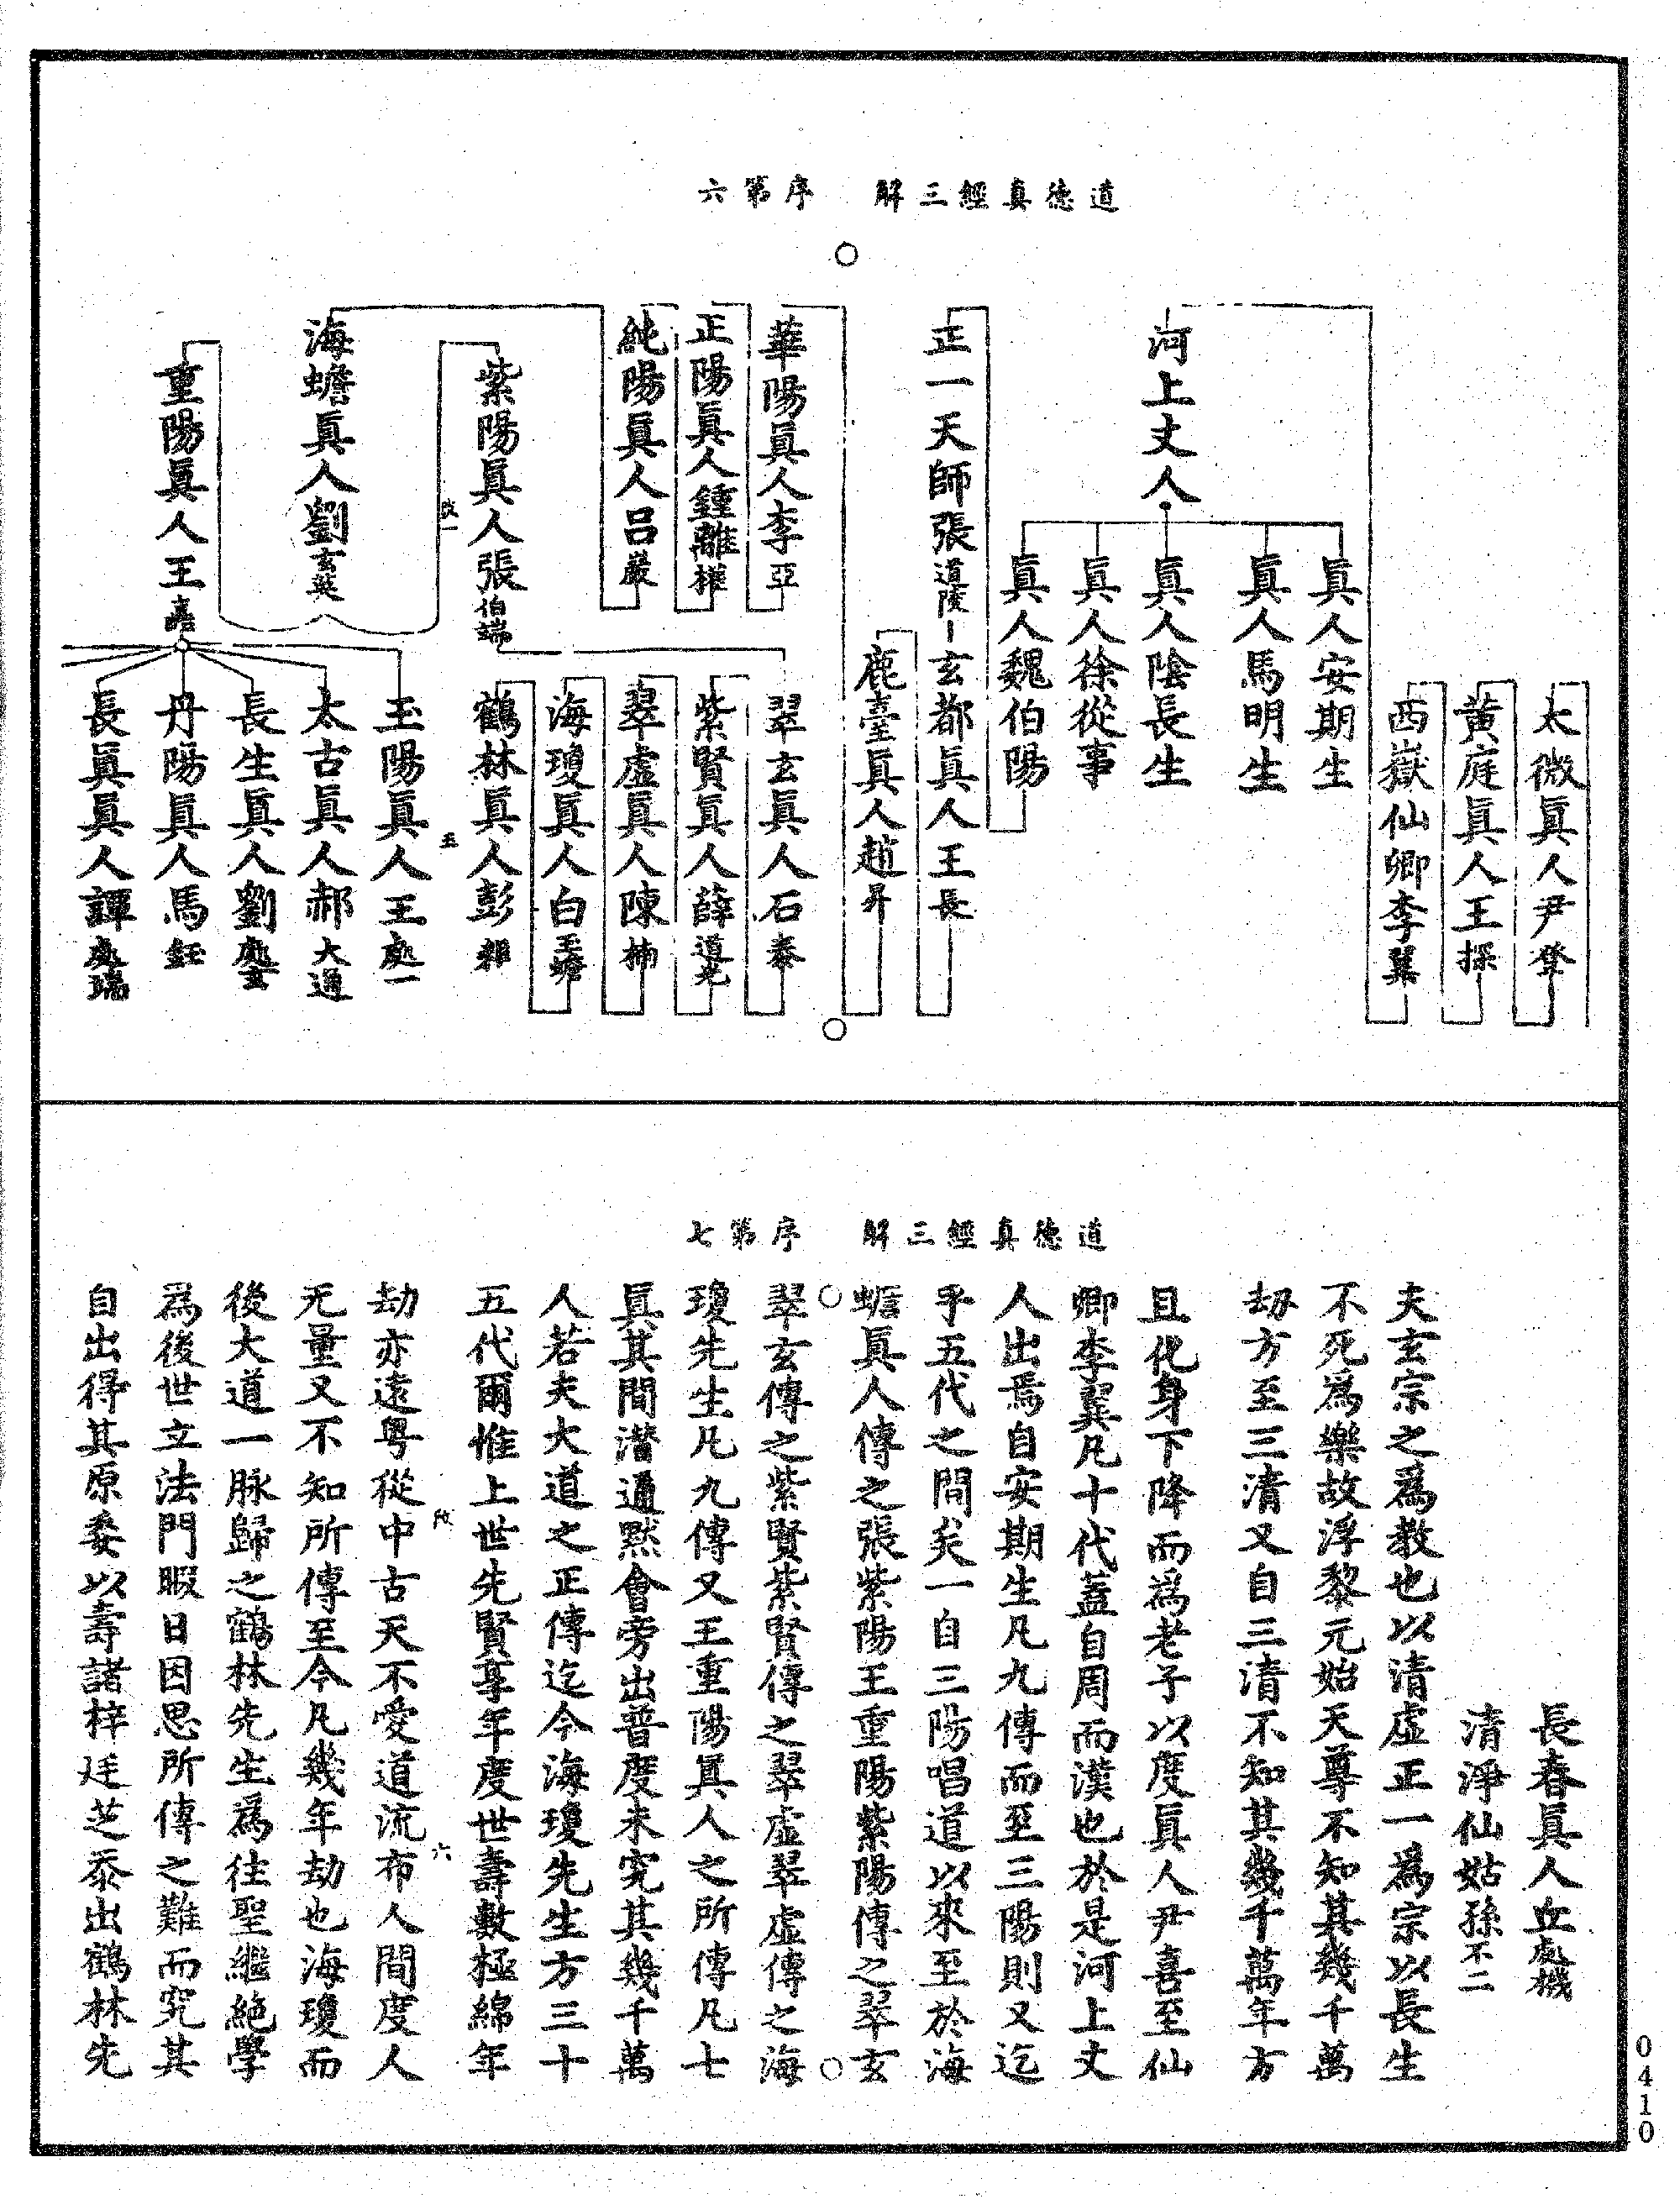 道德真經三解　序第六
太微眞人尹登
黄庭眞人王探
西嶽仙卿李翼
河上丈人
眞人安期生
眞人馬明生
眞人陰長生
眞人徐從事
眞人魏伯陽
正一天師張道陵
玄都眞人王長
鹿臺眞人趙昇
華陽眞人李亞
正陽眞人鍾離權
純陽眞人呂巖
海蟾眞人劉玄英
紫陽眞人張伯端
翠玄眞人石泰
紫賢眞人薛道光
翠虛眞人陳楠
海瓊眞人白玉蟾
鶴林眞人彭耜
重陽眞人王嚞
玉陽眞人王處一
太古眞人郝大通
長生眞人劉處玄
丹陽眞人馬鈺
長眞眞人譚處端
改一
五
道德真經三解　序第七
長春眞人丘處機
清淨仙姑孫不二
夫玄宗之爲教也以清虛正一爲宗以長生
不死爲樂故浮黎元始天尊不知其幾千萬
劫方至三清又自三清不知其幾千萬年方
且化身下降而爲老子以度眞人尹喜至仙
卿李翼凡十代蓋自周而漢也於是河上丈
人出焉自安期生凡九傳而至三陽則又迄
乎五代之間矣一自三陽唱道以來至於海
蟾眞人傳之張紫陽王重陽紫陽傳之翠玄
翠玄傳之紫賢紫賢傳之翠虛翠虛傳之海
瓊先生凡九傳又王重陽眞人之所傳凡七
眞其間潜通默會旁出普度未究其幾千萬
人若夫大道之正傳迄今海瓊先生方三十
五代爾惟上世先賢享年度世壽數極綿年
劫亦遠粤從中古天不愛道流布人間度人
无量又不知所傳至今凡幾年劫也海瓊而
後大道一脉歸之鶴林先生爲往聖繼絕學
爲後世立法門暇日因思所傳之難而究其
自出得其原委以壽諸梓廷芝忝出鶴林先
改
六
0410